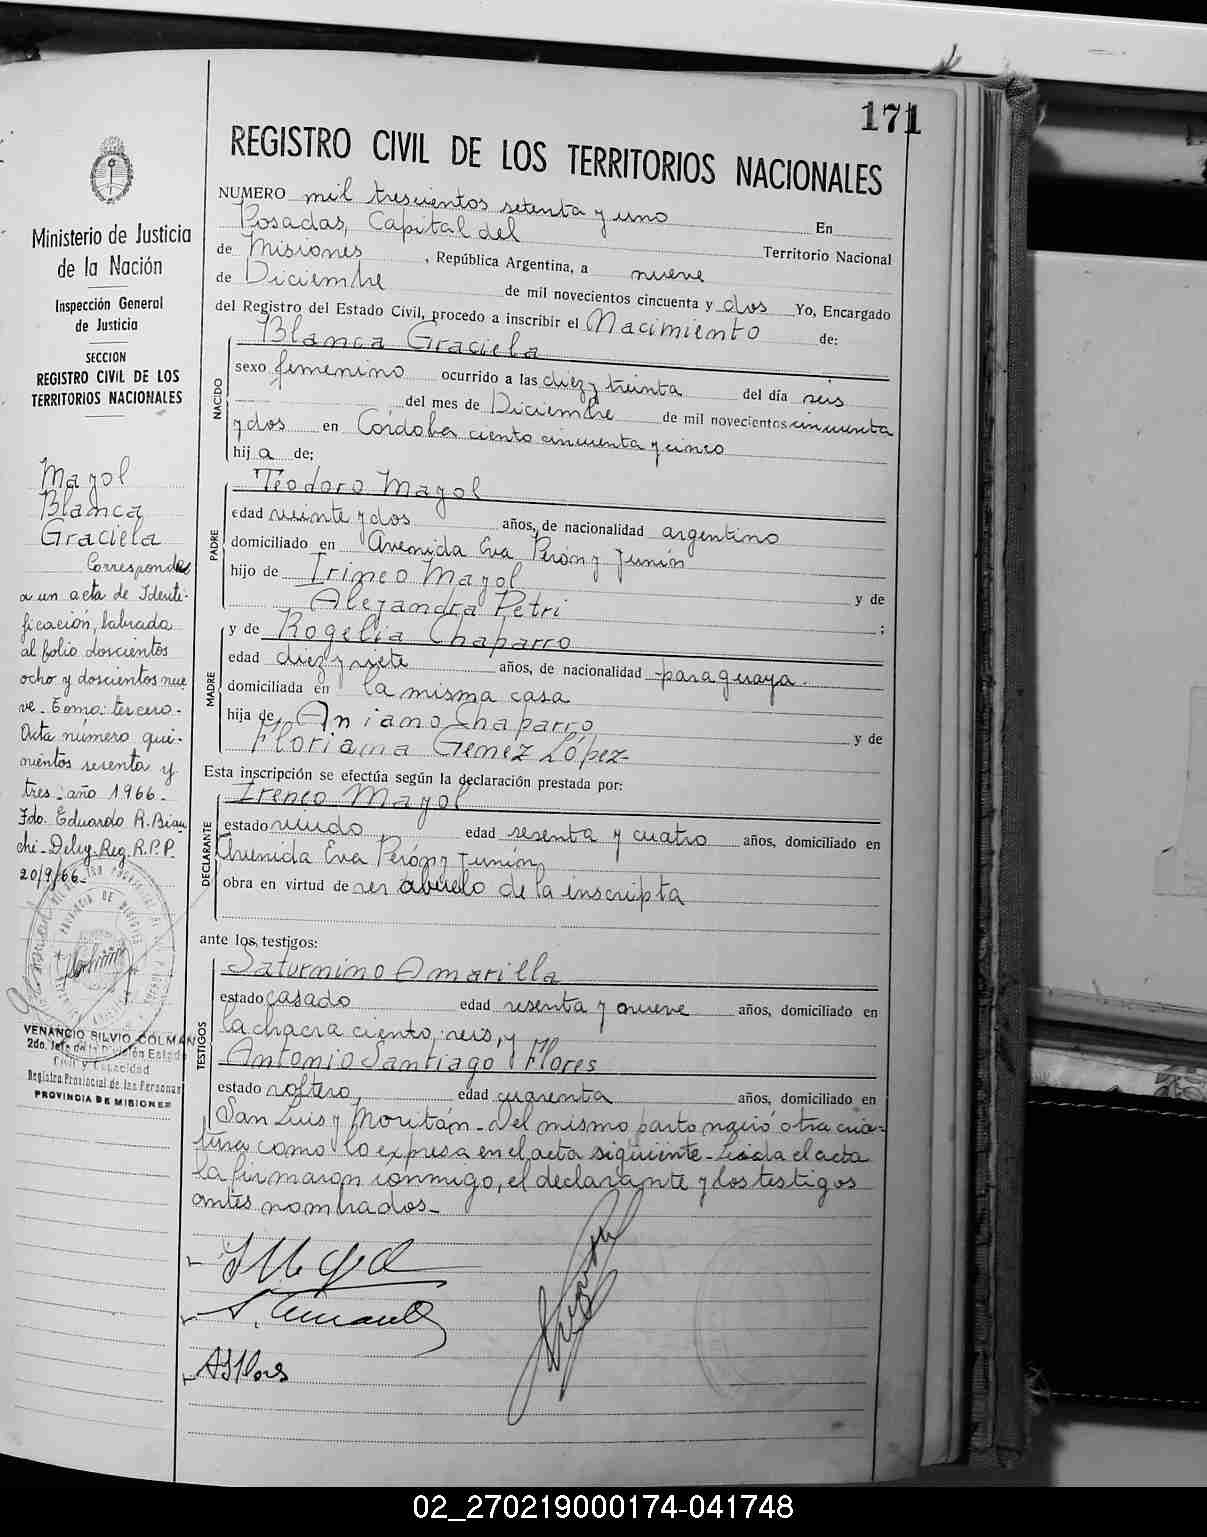 171
REGISTRO CIVIL DE LOS TERRITORIOS NACIONALES
NUMERO mil trescientos setenta y uno En
Posadas, Capital del Territorio Nacional
de Misiones, República Argentina, a nueve
de Diciembre de mil novecientos cincuenta y dos Yo, Encargado
del Registro del Estado Civil, procedo a inscribir el Nacimiento de:
Blanca Graciela
NACIDO
sexo femenino ocurrido a las diez y treinta del día seis
del mes de Diciembre de mil novecientos cincuenta
y dos en Córdoba ciento cincuenta y cinco
hija de;
Teodoro Mayol
PADRE
edad veinte y dos años, de nacionalidad argentino
domiciliado en Avenida Eva Perón y Junín
hijo de Irineo Mayol y de
Alejandra Petri ;
y de Rogelia Chaparro
MADRE
edad diez y siete años, de nacionalidad paraguaya.
domiciliada en la misma casa
hija de, Aniano Chaparro y de
Floriana Gemez López-
Esta inscripción se efectúa según la declaración prestada por:
Ireneo Mayol
DECLARANTE
estado viudo, edad sesenta y cuatro años, domiciliado en
Avenida Eva Perón y Junín,
obra en virtud de ser abuelo de la inscripta
ante los testigos:
Saturnino Amarilla
TESTIGOS
estado casado edad sesenta y nueve años, domiciliado en
la chacra ciento, seis, y
Antonio Santiago Flores
estado soltero, edad cuarenta años, domiciliado en
San Luis y Moritán - Del mismo parto nació otra cria-
tura como lo expresa en el acta siguiente - Leída el acta
la firmaron conmigo, el declarante y los testigos
antes nombrados -
I Mayol
S. Amarilla
ASFlores
Ministerio de Justicia
de la Nación
Inspección General
de Justicia
SECCION
REGISTRO CIVIL DE LOS
TERRITORIOS NACIONALES
Mayol
Blanca
Graciela
Corresponde
a un acta de Identi-
ficación, labrada
al folio doscientos
ocho y doscientos nue
ve - Tomo: tercero -
Acta número qui-
nientos sesenta y
tres - año 1966 -
Fdo. Eduardo R. Bian
chi - Deleg. Reg. R.P.P.
20/9/66 -
VENANCIO SILVIO COLMAN
2do. Jefe de la División Estado
Civil y Capacidad
Registro Provincial de las Personas
PROVINCIA DE MISIONES
02_270219000174-041748